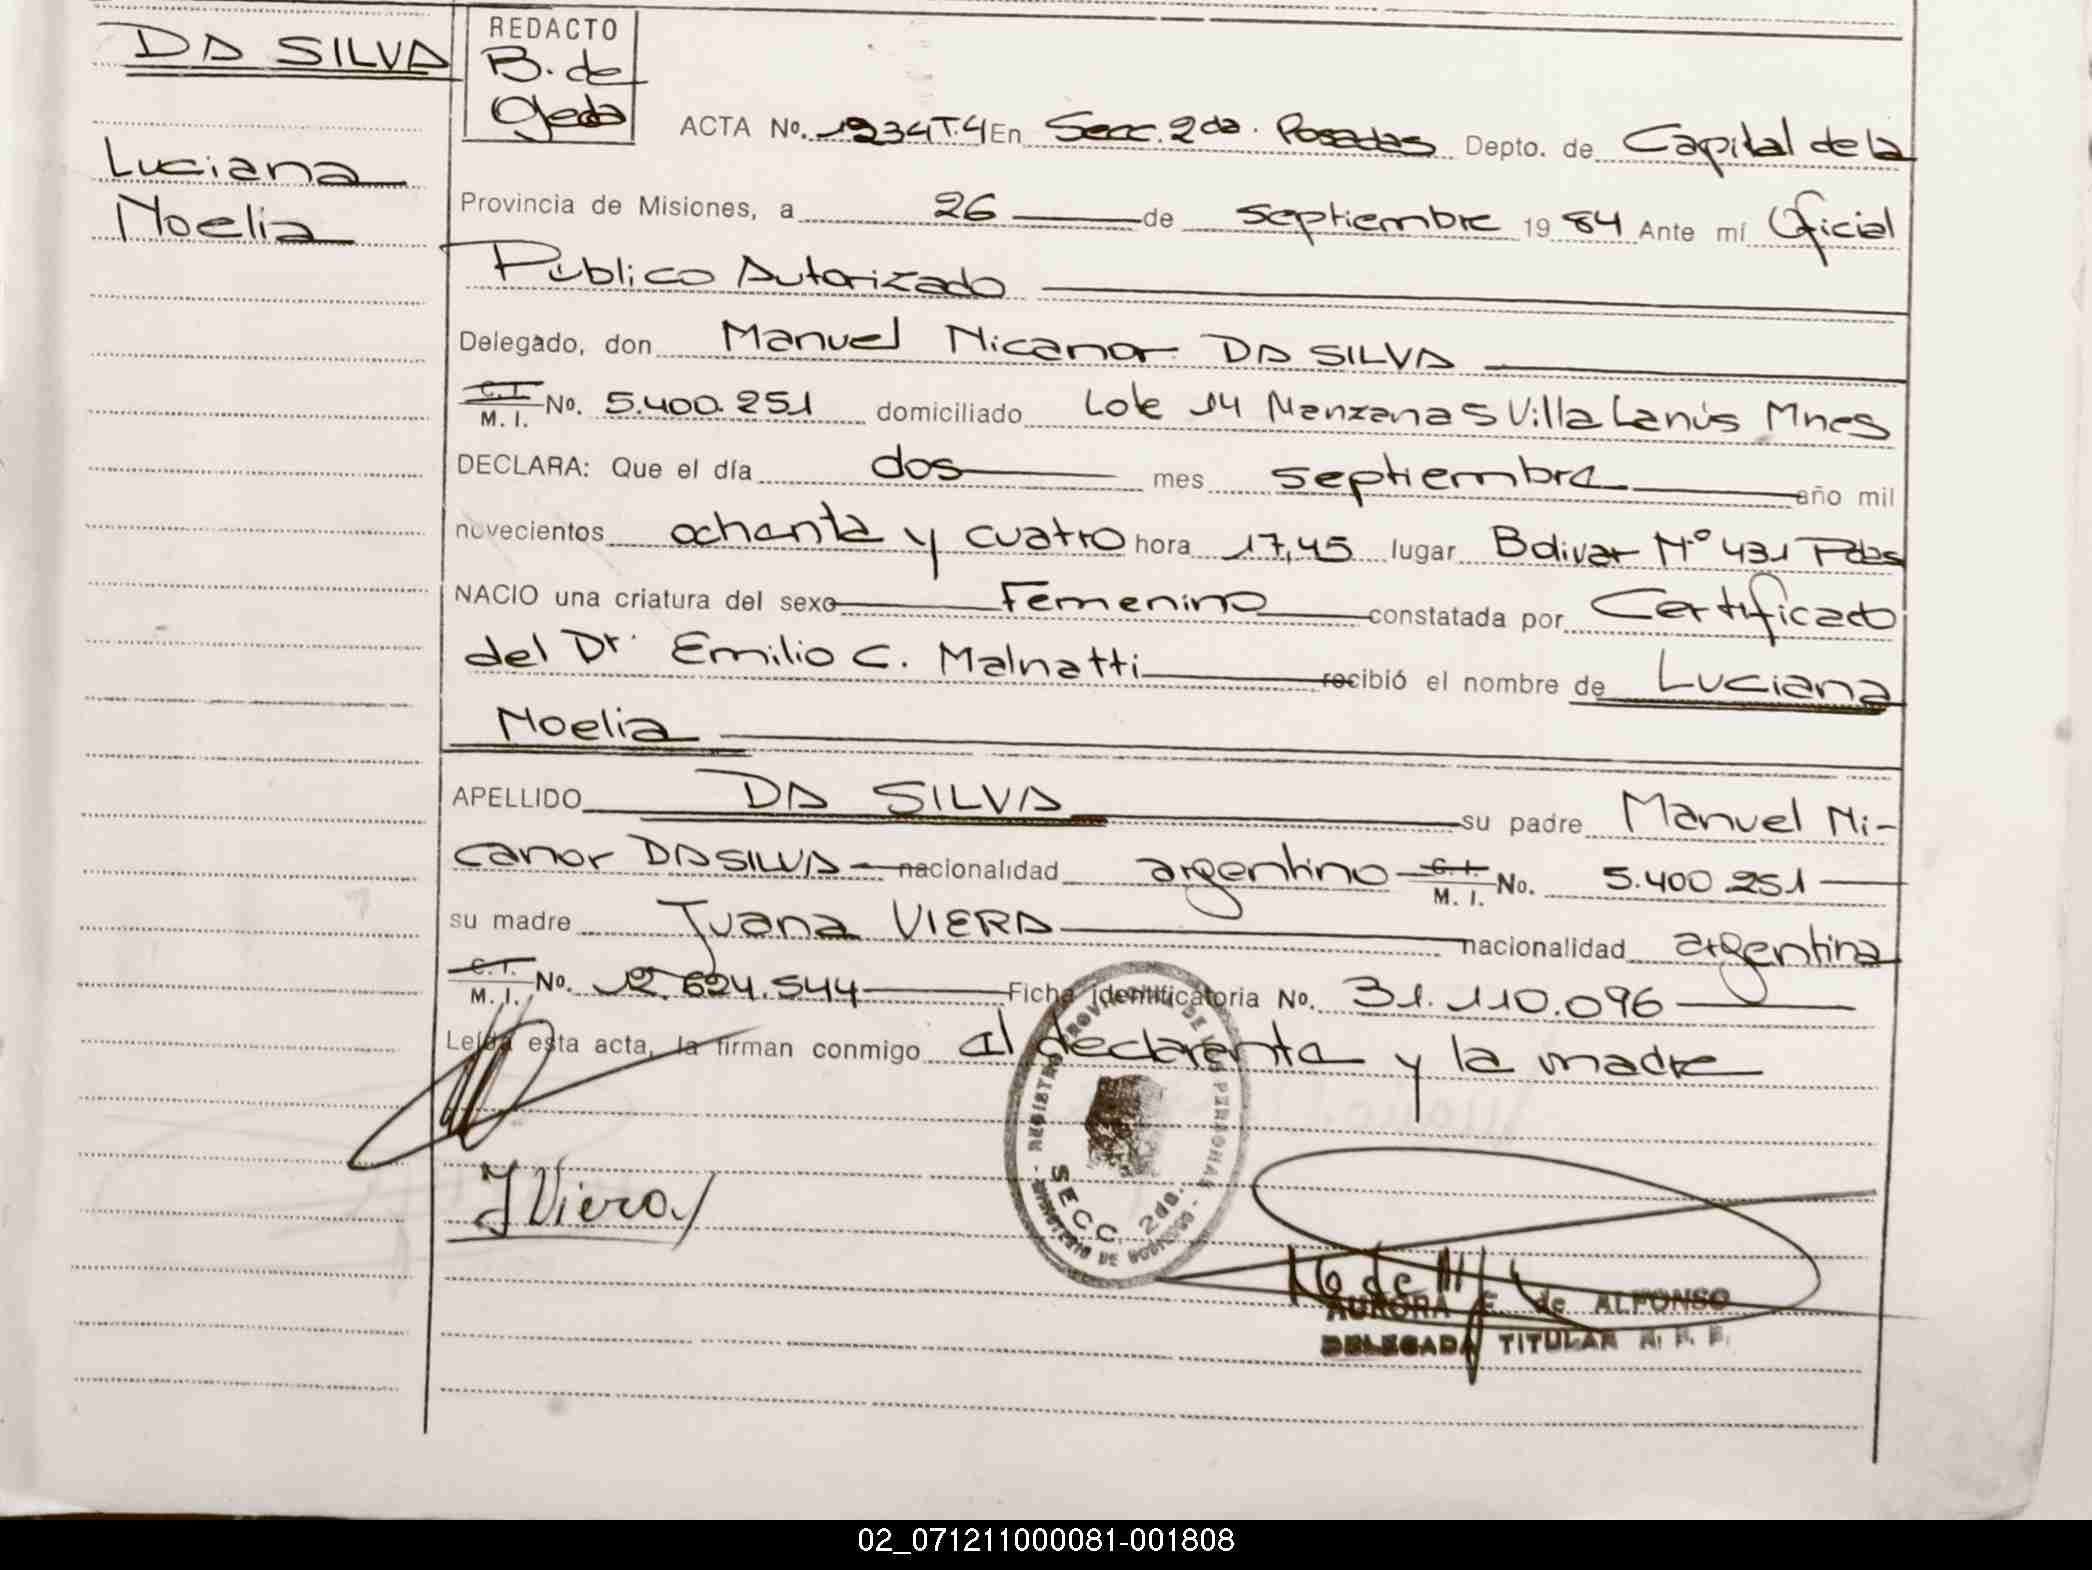 DA SILVA
Luciana
Noelia
REDACTO
B. de
Ojeda
ACTA No. 1234 T.4 En Secc. 2da. Posadas Depto. de Capital de la
Provincia de Misiones, a 26 de septiembre 1984 Ante mí Oficial
Público Autorizado
Delegado, don Manuel Nicanor DA SILVA
C.I.
M. I. No. 5.400.251 domiciliado Lote 14 Manzana 5 Villa Lanús Mnes
DECLARA: Que el día dos mes septiembre año mil
novecientos ochenta y cuatro hora 17,45 lugar Bolivar Nº 431 Pdas
NACIO una criatura del sexo Femenino constatada por Certificado
del Dr. Emilio C. Malnatti recibió el nombre de Luciana
Noelia
APELLIDO DA SILVA su padre Manuel Ni-
canor DA SILVA nacionalidad argentino C.I. M. I. No. 5.400.251
su madre Juana VIERA nacionalidad argentina
C.I.
M. I. No. 12.624.544 Ficha identificatoria No. 31.110.096
Leída esta acta, la firman conmigo el declarante y la madre
JViera
REGISTRO PROVINCIAL DE LAS PERSONAS
MINISTERIO DE GOBIERNO
SECC. 2da.
AURORA F. de ALFONSO
DELEGADA TITULAR R. P. P.
02_071211000081-001808